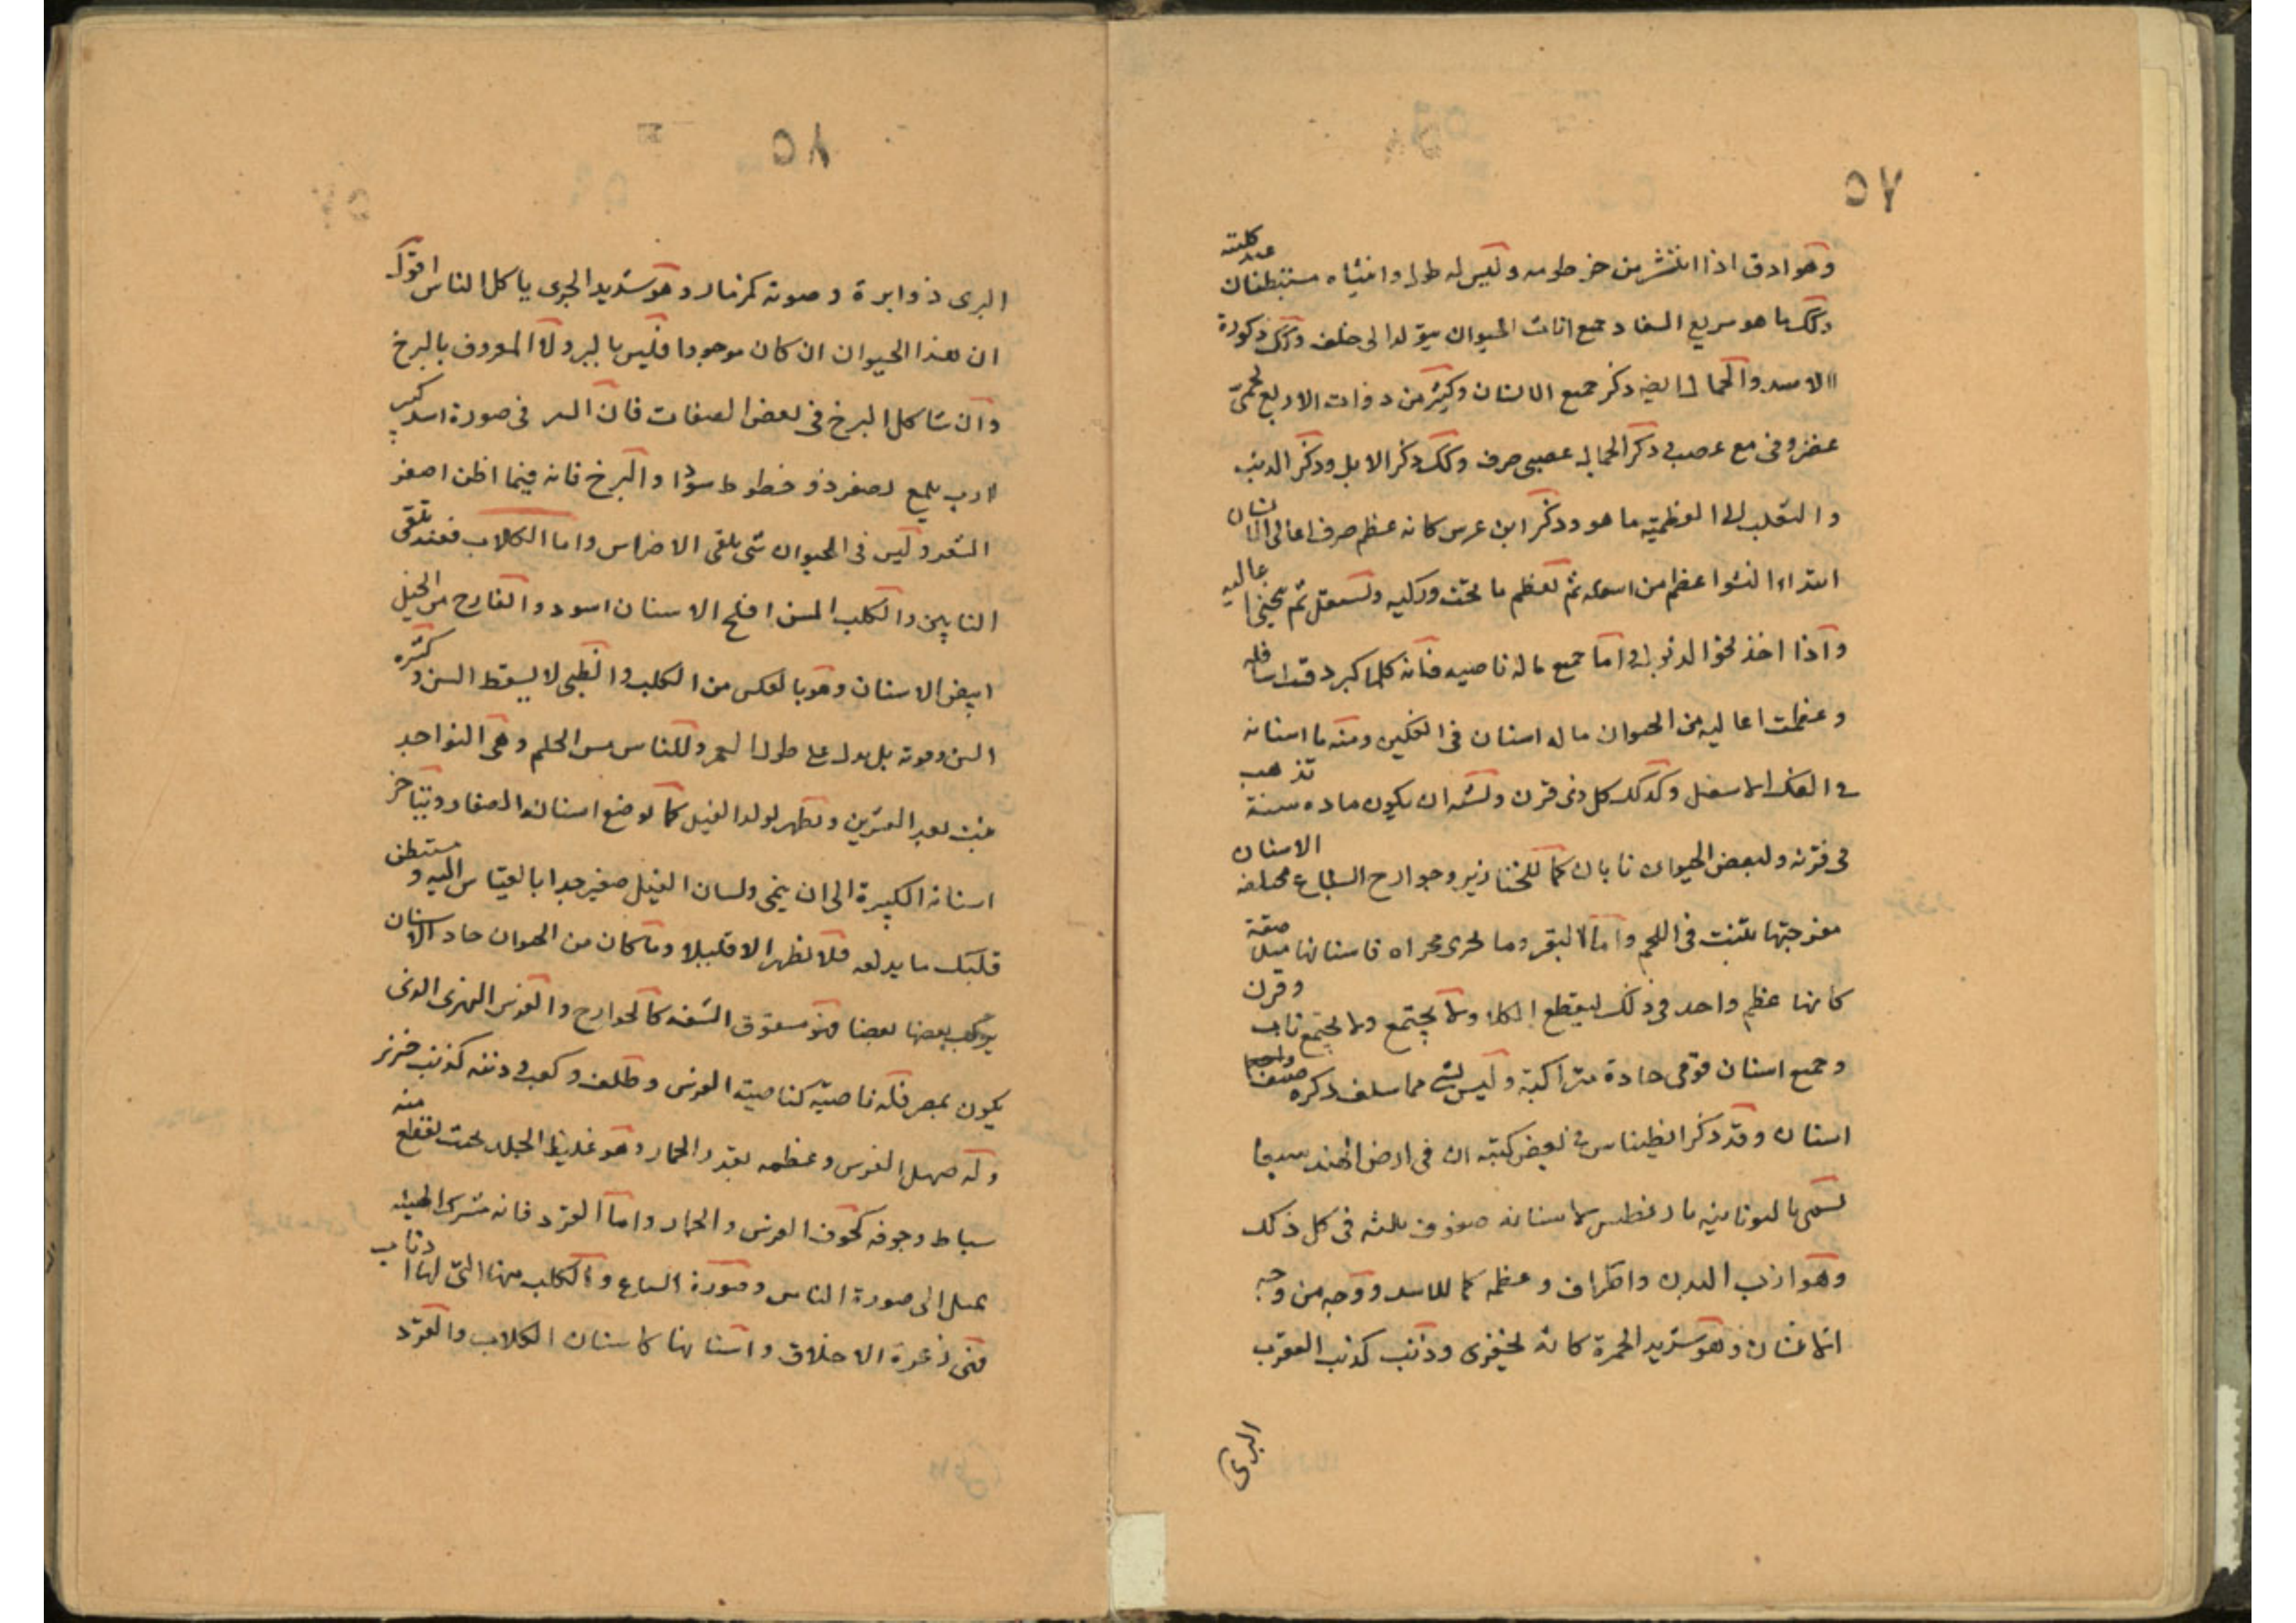 ٥٧
وهو ادق اذا انتشر من خرطومه وليس له طول وانثياه مستبطنان عند كليته
وكك ما هو سريع السفاد جميع اناث الحيوان يبول الى خلف وكك ذكورة
الاسد والجمال ايضه ذكر جميع الانسان وكثير من ذوات الاربع لحمى
غضروفى مع عصب فى ذكر الجمال عصبى صرف وكك ذكر الابل وذكر الذئب
والثعلب الى العظمية ما هو وذكر ابن عرس كانه عظم صرف اعالى الانسان
ابتداء النشوا عظم من اسفله ثم تعظم ما تحت وركيه ويستقل ثم ينحنى اعاليه
واذا اخذ نحو الذبول واما جميع ما له ناصيه فانه كلما كبر دقت اسافله
وعظمت اعاليه من الحيوان ما له اسنان فى الفكين ومنه ما اسنانه
فى الفك الاسفل وكذلك كل ذى قرن ويشبه ان يكون مادة سنة تذهب
فى قرنه ولبعض الحيوان نابان كما للخنازير وجوارح السباع مختلفه الاسنان
مفرجتها لتثبت فى اللحم واما البقر وما يجرى مجراه فاسنانها متصلة صقة
كانها عظم واحد وذلك ليقطع الكلاء ولا يجتمع ولا يجتمع ناب وقرن
وجميع اسنان قوقى حادة متراكبة وليس لشى مما سلف ذكره صنفا
اسنان وقد ذكر انطيناس فى بعض كتبه ان فى ارض الهند سبعا
يسمى باليونانيه مارنطيس لاسنانه صفوف ثلثه فى كل فك
وهو ازب البدن واطراف وعظمه كما للاسد ووجه من وجه
انه انسان وهو شديد الحمرة كانه لخيفرى وذنب كذنب العقرب
البرى
٥٨
البرى ذو ابرة وصوته كمزمار وهو شديد الجرى ياكل الناس اقول
ان هذا الحيوان ان كان موجودا فليس بالببر ولا المعروف بالبرخ
وان شاكل البرخ فى بعض الصفات فان الببر فى صورة اسد كبير
ازب يلمع لصفر ذو خطوط سود والبرخ فانه فيما اظن اصغر
الشعر وليس فى الحيوان شى يلقى الاضراس واما الكلاب فعندى تلقى
النابين والكلب المسن افلح الاسنان اسود والقارح من الخيل
ابيض الاسنان وهو بالعكس من الكلب والظبى لا يسقط السن وكثره
السن وموته بل يدل على طول العمر وللناس سن الحلم وهى النواجد
ينبت بعد العشرين وتظهر لولد الفيل كما يوضع اسنانه الصغار ويتاخر
اسنانه الكبيرة الى ان ينمى ولسان الفيل صغير جدا بالقياس اليه ومستبطن
قلبك ما يدلعه فلا تظهر الا قليلا وما كان من الحيوان حاد الاسنان
يركب بعضها بعضا فهو مسقوق الشفه كالجوارح والفرس النهرى الذى
يكون بمصر فله ناصيه كناصية الفرس وظلف وكعب وذنبه كذنب خنزير
وله صهيل الفرس وعظمه بقدر الحمار وهو غليظ الجلد بحيث يقطع منه
سياط وجوفه كجوف الفرس والحمار واما القرد فانه مشرك الهيئه
يميل الى صورة الناس وصورة السباع والكلب منها التى لها اذناب
فهى ذعرة الاخلاق واسنانها كاسنان الكلاب والقرد